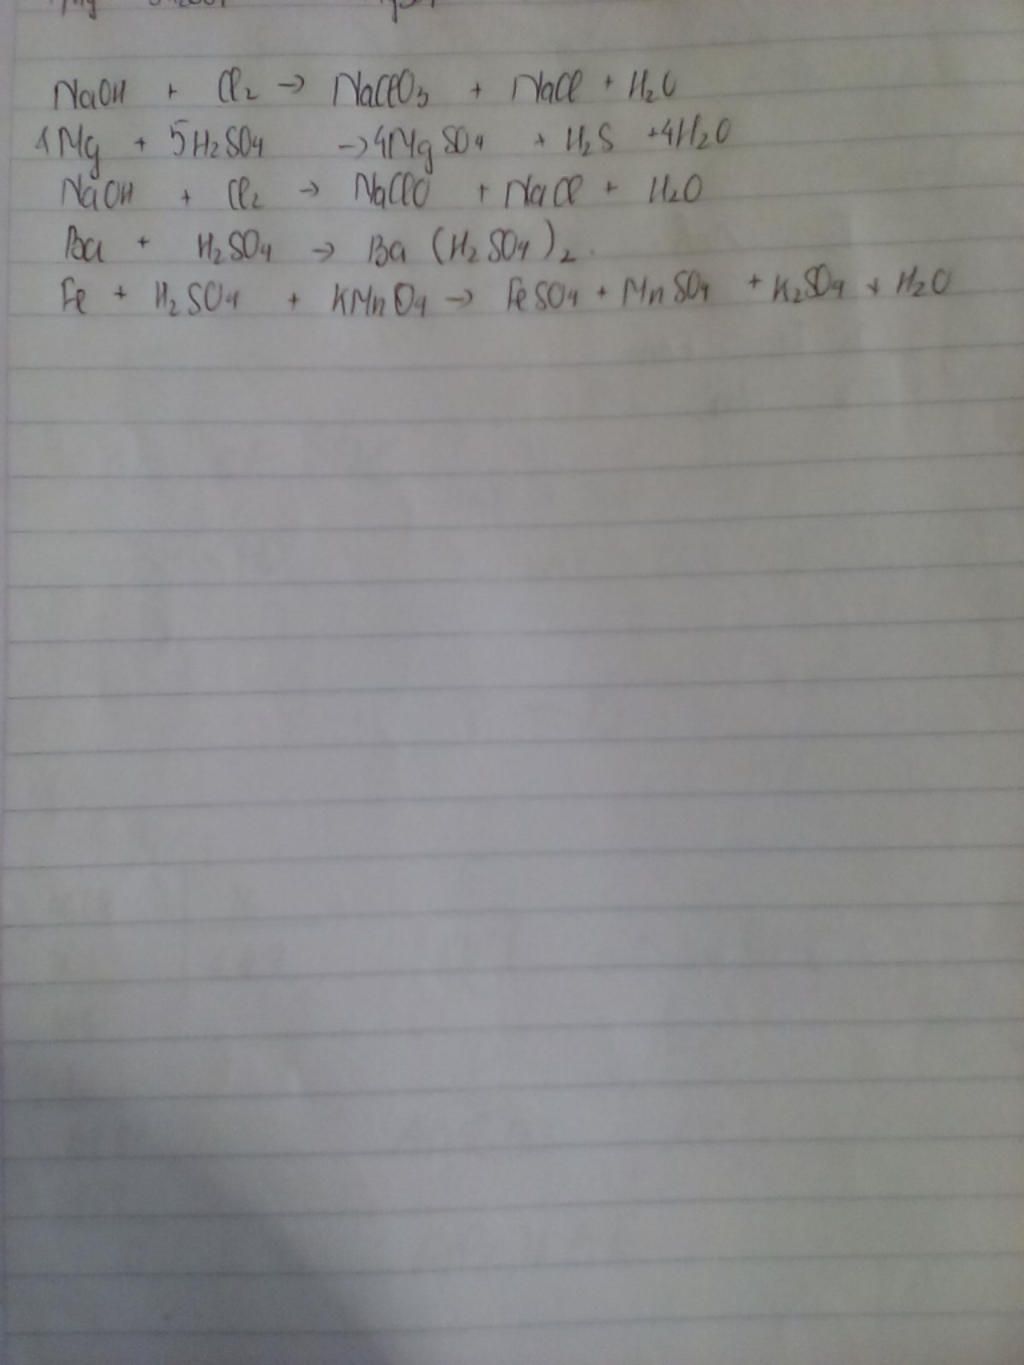 NaOH + Cl2 → NaClO3 + NaCl + H2O
4Mg + 5H2SO4 → 4MgSO4 + H2S + 4H2O
NaOH + Cl2 → NaClO + NaCl + H2O
Ba + H2SO4 → Ba (H2SO4)2.
Fe + H2SO4 + KMnO4 → FeSO4 + MnSO4 + K2SO4 + H2O